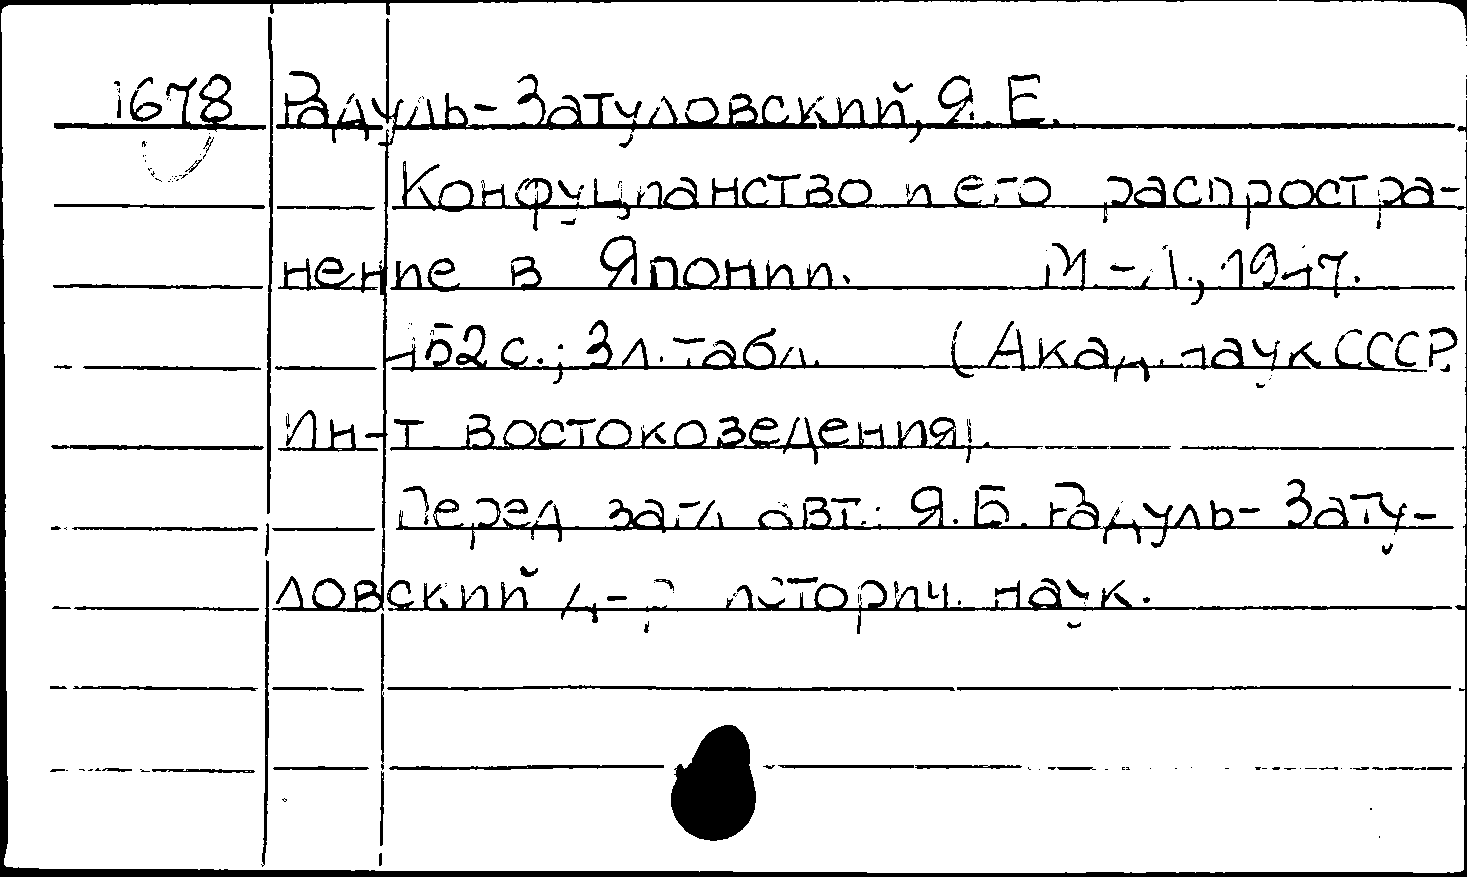 1678 Радуль-Затуловский, Я. Б.
Конфуцианство и его распростра-
нение в Японии. М.-Л., 1947.
452 с.; 3 л. табл. (Акад. наук СССР.
Ин-т востоковедения).
Перед загл. авт.: Я. Б. Радуль-Зату-
ловский д-р историч. наук.